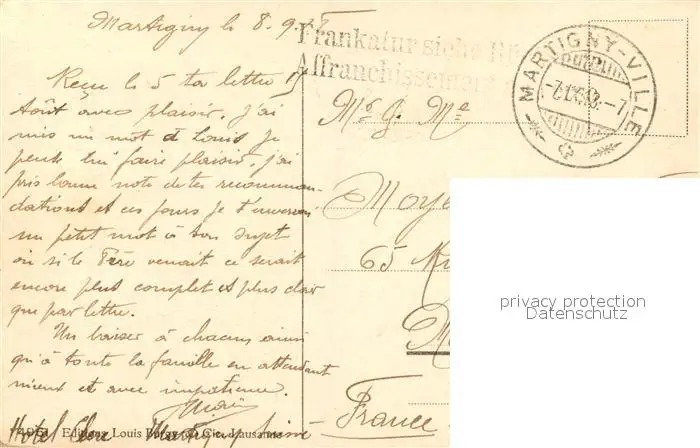 Martigny le 8.9.
Frankatur siehe
Affranchissement
MARTIGNY-VILLE
Reçu le 5 ta lettre
août avec plaisir, j'ai
mis un mot à Louis je
pense lui faire plaisir, j'ai
pris bonne note de tes recomman-
dations et ces jours je t'enverrai
un petit mot à ton sujet
ou si le Père venait ce serait
encore plus complet et plus clair
que par lettre.
Un baiser à chacun ainsi
qu'à toute la famille en attendant
mieux et avec impatience.
Mr G. Me
Moye
65
France
privacy protection
Datenschutz
Editions Louis Burgy & Cie., Lausanne
Hotel Martigny Suisse